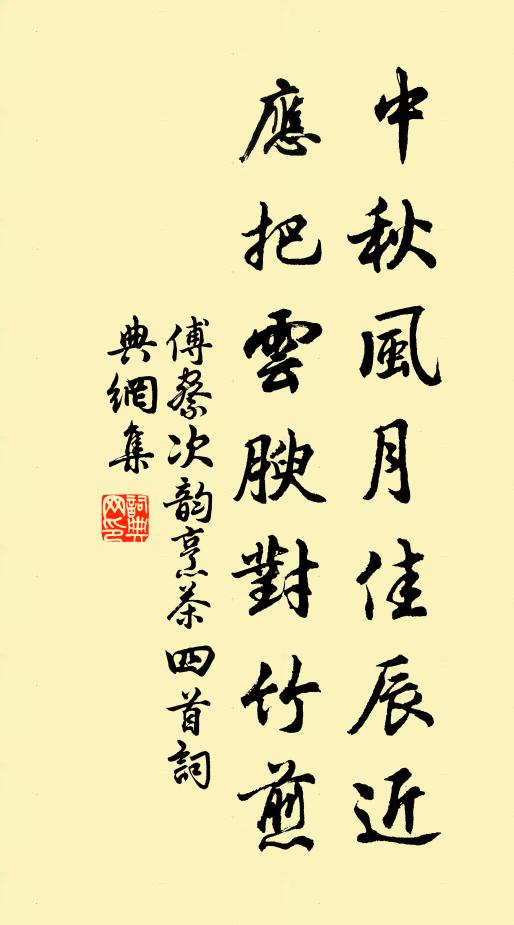 中秋風月佳辰近
應把雲腴對竹煎
傅察次韵烹茶四首詞
典網集
詞典
网印